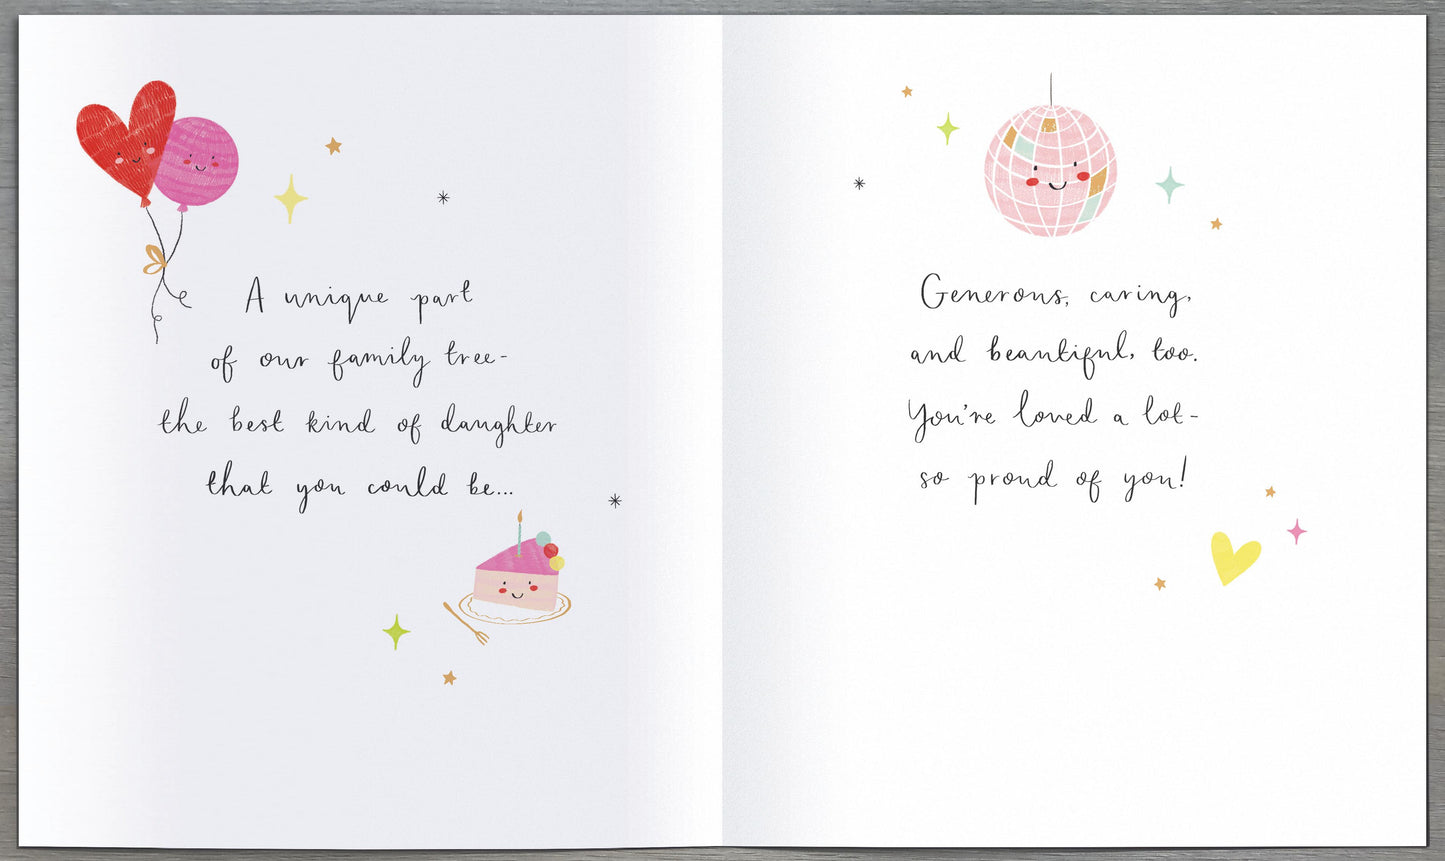 A unique part
of our family tree-
the best kind of daughter
that you could be...
Generous, caring,
and beautiful, too.
You're loved a lot-
so proud of you!